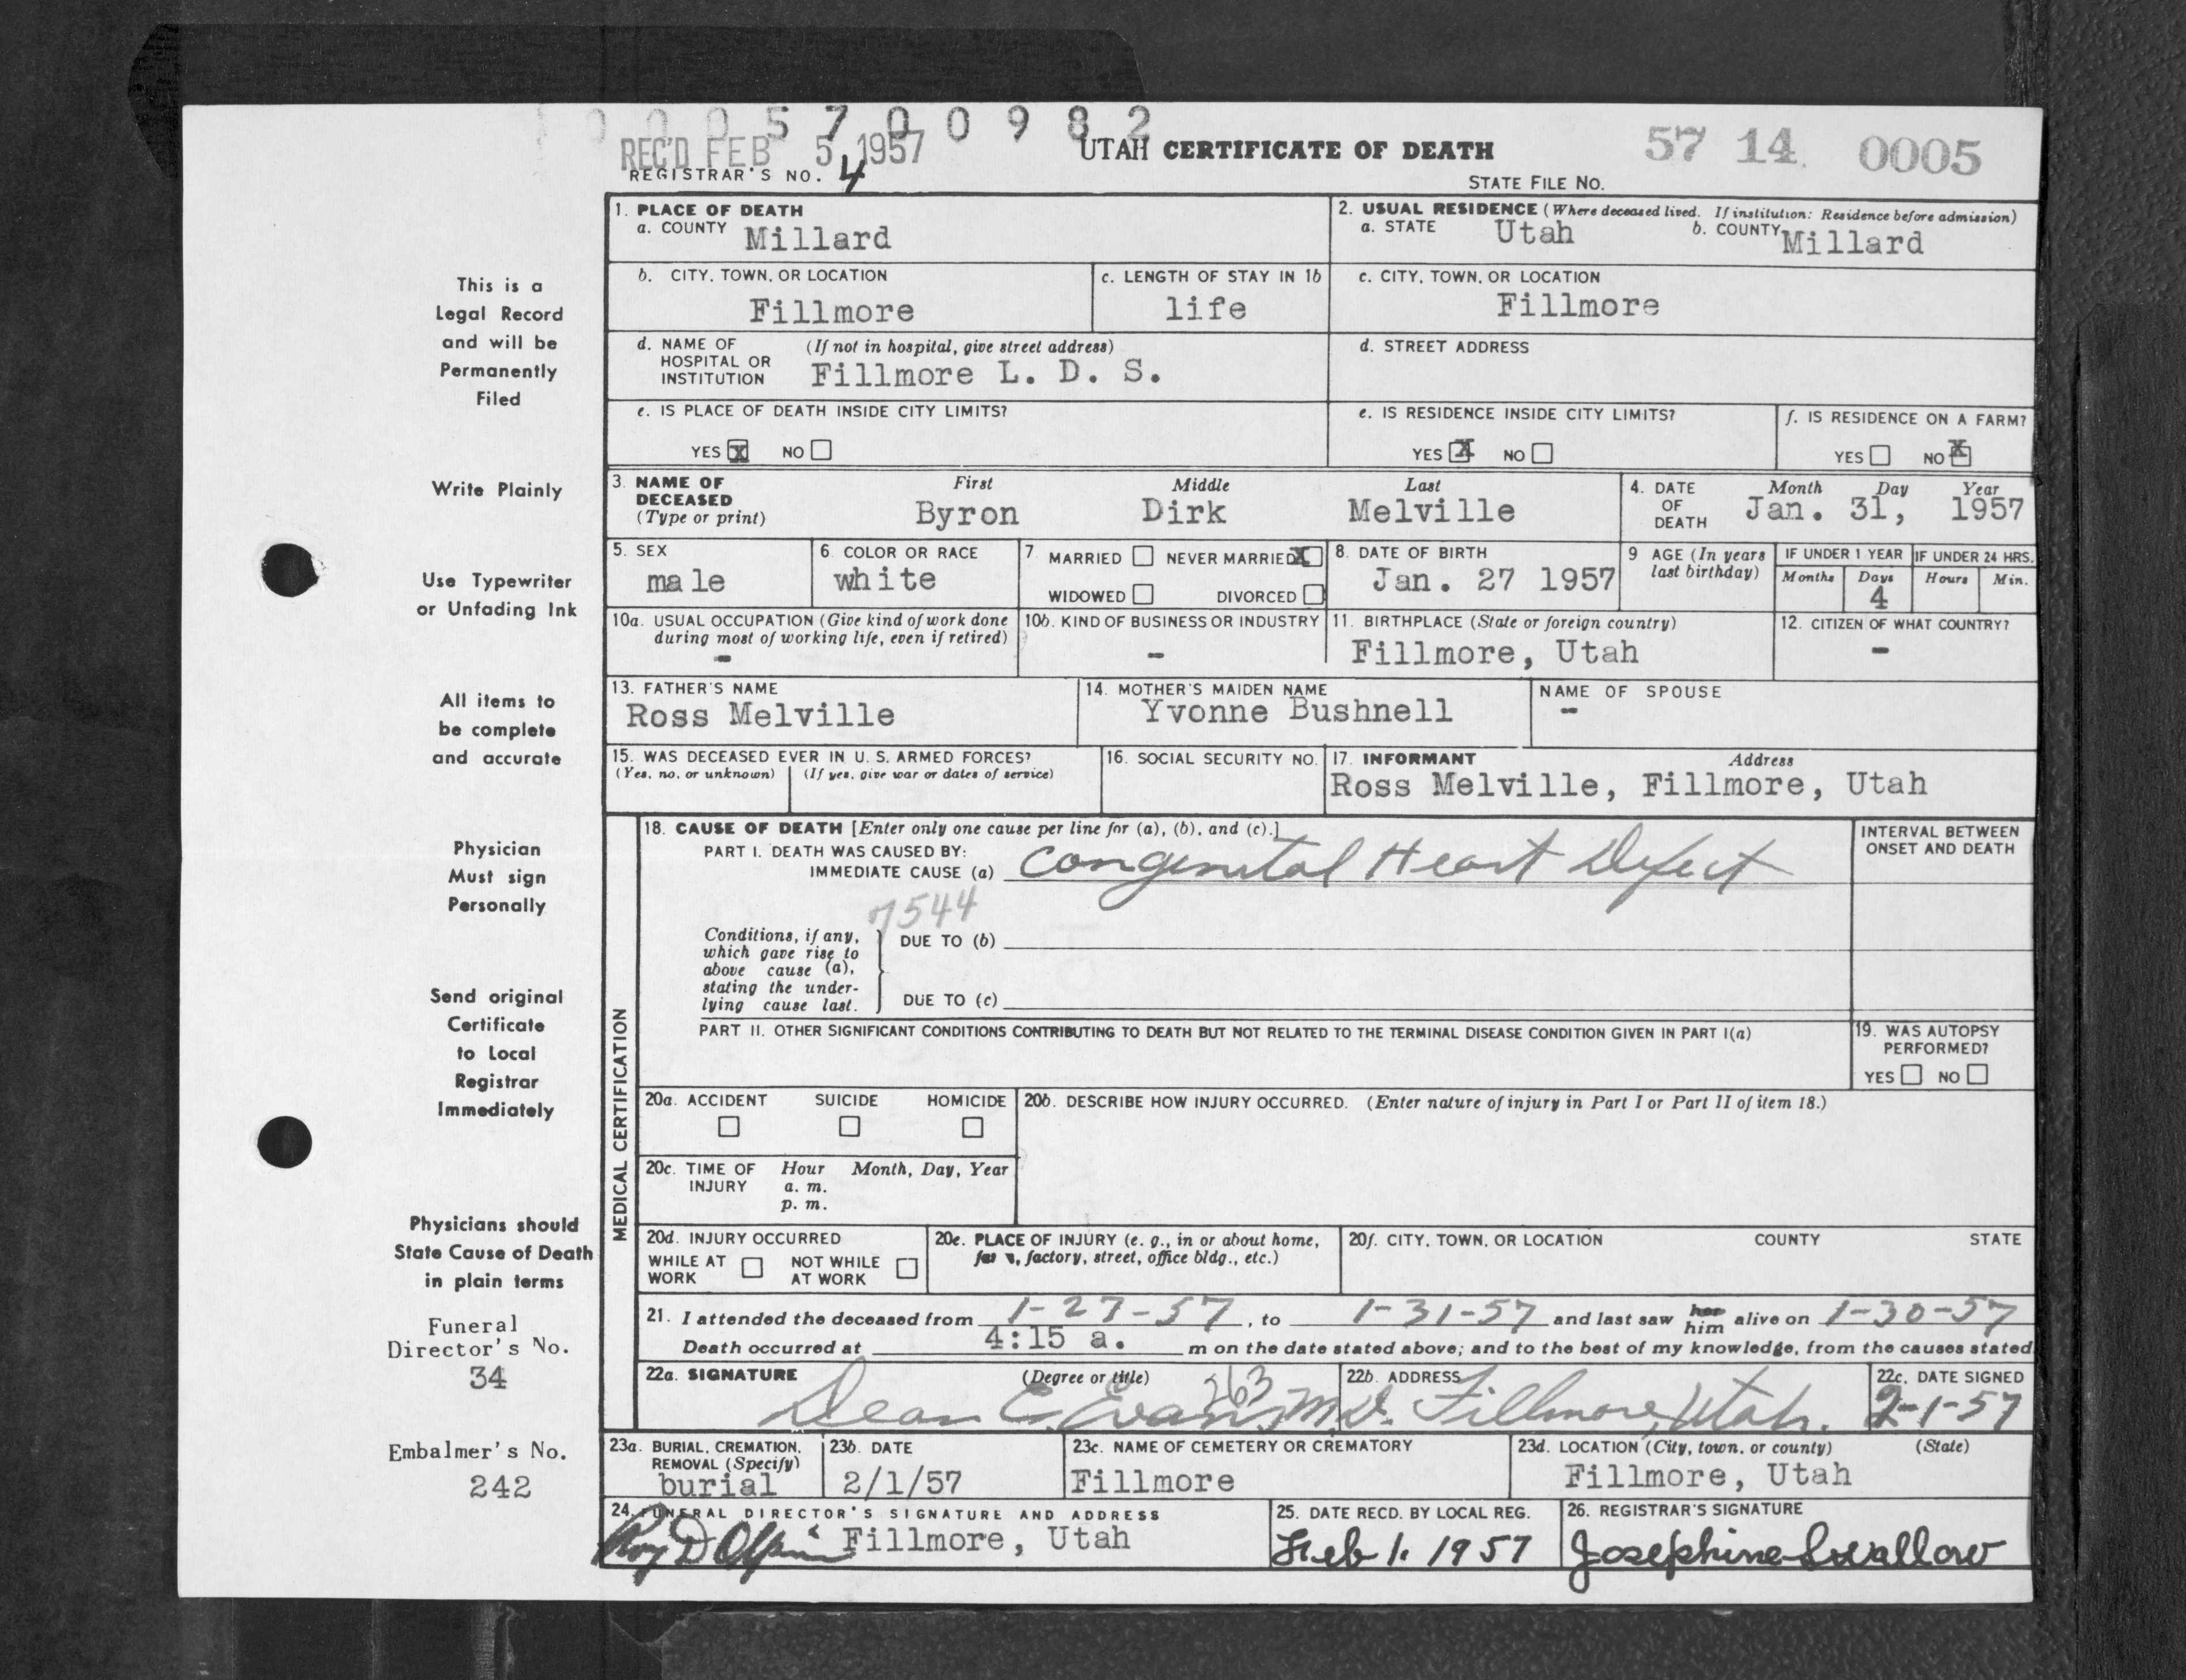 0 0 0 5 7 0 0 9 8 2
REC'D FEB 5 1957
UTAH CERTIFICATE OF DEATH
57 14 0005
REGISTRAR'S NO. 4
STATE FILE NO.
1. PLACE OF DEATH
a. COUNTY Millard
2. USUAL RESIDENCE (Where deceased lived. If institution: Residence before admission)
a. STATE Utah b. COUNTY Millard
b. CITY, TOWN, OR LOCATION
Fillmore
c. LENGTH OF STAY IN 1b
life
c. CITY, TOWN, OR LOCATION
Fillmore
d. NAME OF (If not in hospital, give street address)
HOSPITAL OR
INSTITUTION Fillmore L. D. S.
d. STREET ADDRESS
e. IS PLACE OF DEATH INSIDE CITY LIMITS?
YES X NO
e. IS RESIDENCE INSIDE CITY LIMITS?
YES X NO
f. IS RESIDENCE ON A FARM?
YES NO X
3. NAME OF DECEASED (Type or print)
First Middle Last
Byron Dirk Melville
4. DATE OF DEATH
Month Day Year
Jan. 31, 1957
5. SEX
male
6. COLOR OR RACE
white
7. MARRIED NEVER MARRIED X
WIDOWED DIVORCED
8. DATE OF BIRTH
Jan. 27 1957
9 AGE (In years
last birthday)
IF UNDER 1 YEAR
Months Days
4
IF UNDER 24 HRS.
Hours Min.
10a. USUAL OCCUPATION (Give kind of work done
during most of working life, even if retired)
-
10b. KIND OF BUSINESS OR INDUSTRY
-
11. BIRTHPLACE (State or foreign country)
Fillmore, Utah
12. CITIZEN OF WHAT COUNTRY?
-
13. FATHER'S NAME
Ross Melville
14. MOTHER'S MAIDEN NAME
Yvonne Bushnell
NAME OF SPOUSE
-
15. WAS DECEASED EVER IN U. S. ARMED FORCES?
(Yes, no, or unknown) (If yes, give war or dates of service)
16. SOCIAL SECURITY NO.
17. INFORMANT Address
Ross Melville, Fillmore, Utah
MEDICAL CERTIFICATION
18. CAUSE OF DEATH [Enter only one cause per line for (a), (b), and (c).]
PART I. DEATH WAS CAUSED BY:
IMMEDIATE CAUSE (a) Congenital Heart Defect
INTERVAL BETWEEN
ONSET AND DEATH
7544
Conditions, if any,
which gave rise to
above cause (a),
stating the under-
lying cause last.
DUE TO (b)
DUE TO (c)
PART II. OTHER SIGNIFICANT CONDITIONS CONTRIBUTING TO DEATH BUT NOT RELATED TO THE TERMINAL DISEASE CONDITION GIVEN IN PART I(a)
19. WAS AUTOPSY
PERFORMED?
YES NO
20a. ACCIDENT SUICIDE HOMICIDE
20b. DESCRIBE HOW INJURY OCCURRED. (Enter nature of injury in Part I or Part II of item 18.)
20c. TIME OF INJURY
Hour Month, Day, Year
a. m.
p. m.
20d. INJURY OCCURRED
WHILE AT WORK NOT WHILE AT WORK
20e. PLACE OF INJURY (e. g., in or about home,
farm, factory, street, office bldg., etc.)
20f. CITY, TOWN, OR LOCATION COUNTY STATE
21. I attended the deceased from 1-27-57, to 1-31-57 and last saw her him alive on 1-30-57
Death occurred at 4:15 a. m on the date stated above; and to the best of my knowledge, from the causes stated
22a. SIGNATURE (Degree or title) 263
Dean E. Evans, M.D.
22b. ADDRESS
Fillmore, Utah.
22c. DATE SIGNED
2-1-57
23a. BURIAL, CREMATION,
REMOVAL (Specify)
burial
23b. DATE
2/1/57
23c. NAME OF CEMETERY OR CREMATORY
Fillmore
23d. LOCATION (City, town, or county) (State)
Fillmore, Utah
24. FUNERAL DIRECTOR'S SIGNATURE AND ADDRESS
Roy D Olpin Fillmore, Utah
25. DATE RECD. BY LOCAL REG.
Feb 1. 1957
26. REGISTRAR'S SIGNATURE
Josephine Swallow
This is a
Legal Record
and will be
Permanently
Filed
Write Plainly
Use Typewriter
or Unfading Ink
All items to
be complete
and accurate
Physician
Must sign
Personally
Send original
Certificate
to Local
Registrar
Immediately
Physicians should
State Cause of Death
in plain terms
Funeral
Director's No.
34
Embalmer's No.
242